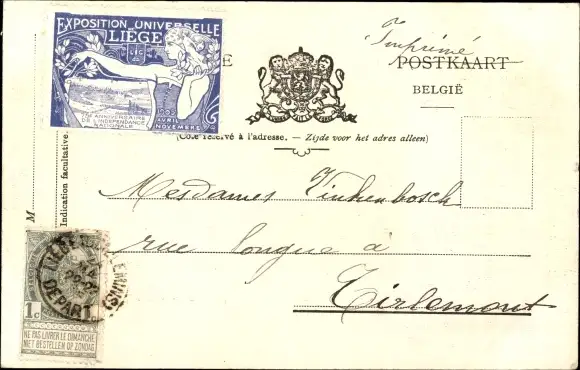 EXPOSITION UNIVERSELLE
LIÈGE
1905
AVRIL
NOVEMBRE
ANNIVERSAIRE
DE L'INDEPENDANCE
NATIONALE
E
Imprimé
POSTKAART
BELGIË
(Côté réservé à l'adresse. — Zijde voor het adres alleen)
M
Indication facultative.
Mesdames Vinkenbosch
rue longue à
Tirlemont
LIÉGE
DEPART
1c
NE PAS LIVRER LE DIMANCHE
NIET BESTELLEN OP ZONDAG